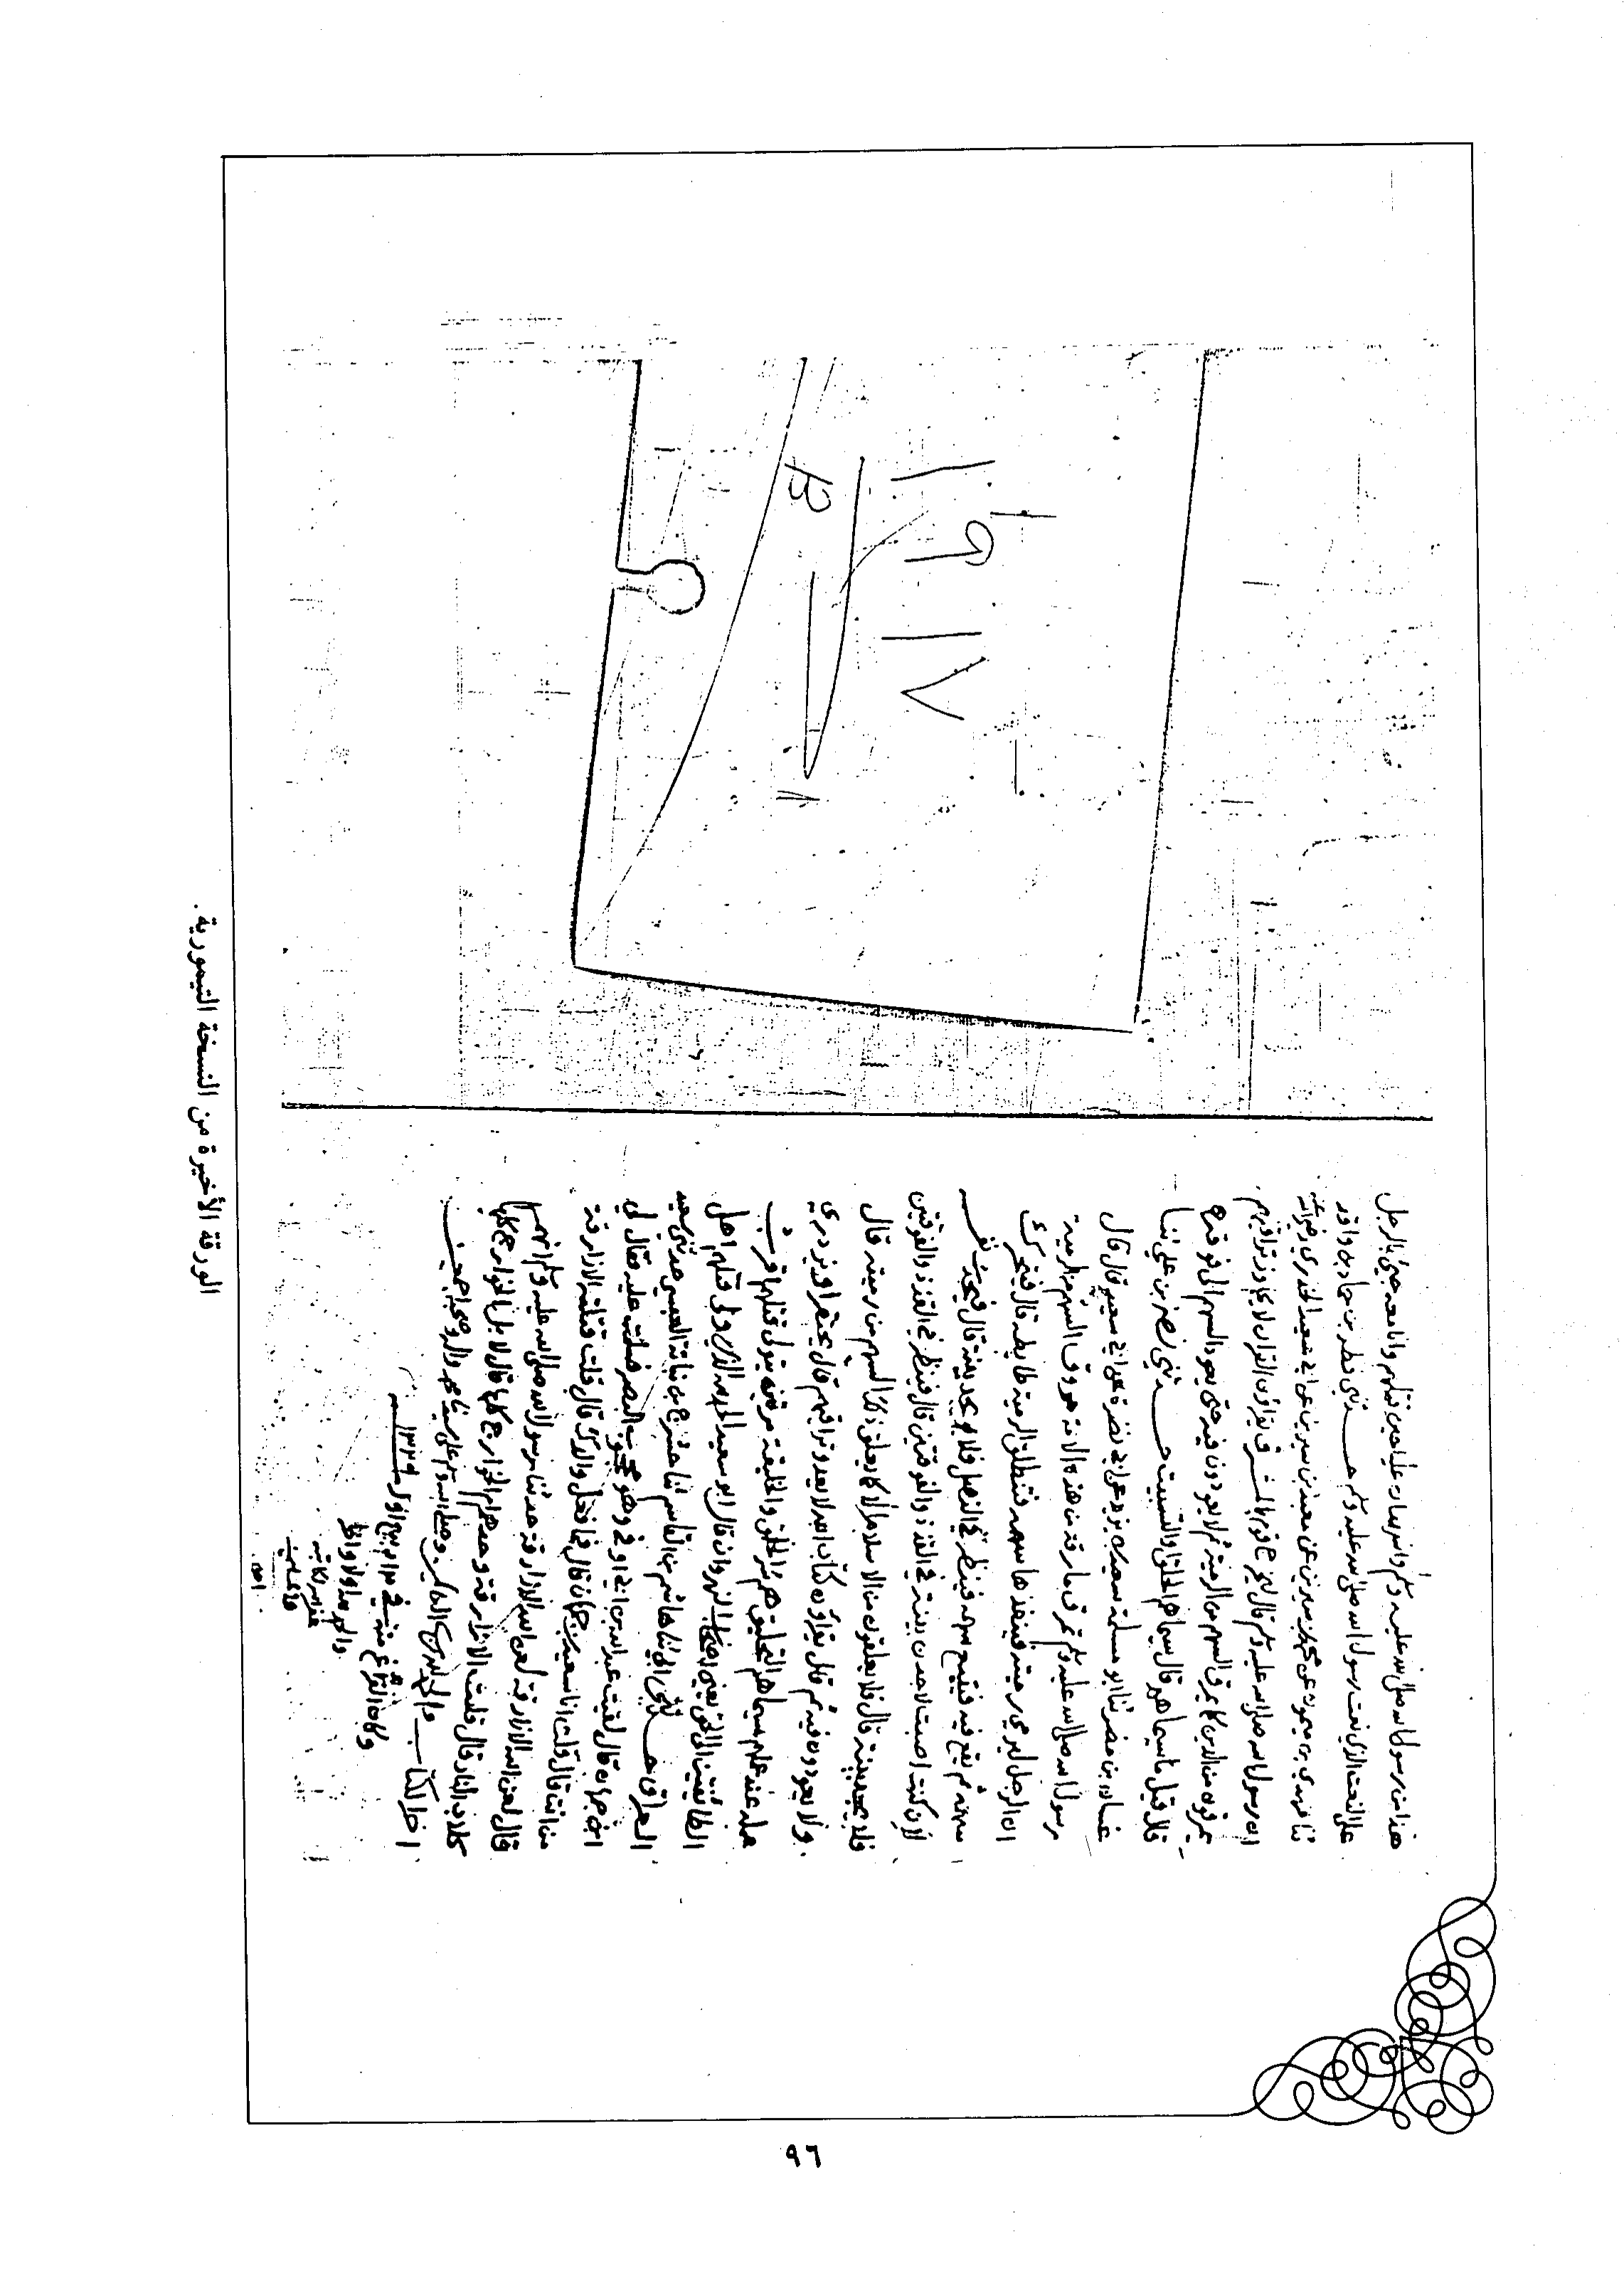 هذا من رسول الله صلى الله عليه وسلم واشهد ان عليا حين قتلهم وانا معه جيئ بالرجل
على النعت الذي نعت رسول الله صلى الله عليه وسلم حدثني قطر بن حماد بن واقد
ثنا مهدي بن ميمون عن محمد بن سيرين عن معبد بن سيرين عن ابي سعيد الخدري
ان رسول الله صلى الله عليه وسلم قال يخرج قوم قبل المشرق يقرأون القرآن لا يجاوز تراقيهم
يمرقون من الدين كما يمرق السهم من الرمية ثم لا يعودون فيه حتى يعود السهم الى فوقه
قال قيل ما سيماهم قال سيماهم الحلق والتسبيت حدثني نصر بن علي ثنا
غسان بن مضر ثنا ابو مسلمة سعيد بن يزيد عن ابي نضرة عن ابي سعيد قال قال
رسول الله صلى الله عليه وسلم تمرق مارقة من هذه الامة مروق السهم من الرمية
ان الرجل ليرمي رميته فينفذها سهمه فتنطلق الرمية قال فيتحرك
سهمه ثم يقع فيه فيتبع سهمه فينظر في النصل فلا يجد بينة قال
لان كنت اصبت لاجدن بينة في القذذ والفوقتين قال فينظر في القذذ والفوقتين
فلا يجد بينة قال فلا يعلقون من الاسلام الا كما يعلق ذلك السهم من رميته قال
ولا يعودون فيه ثم قال يقرأون كتاب الله لا يعدو تراقيهم قال يحتقر او يزدري
عمله عند عملهم سيماهم التحليق هم شر الخلق والخليقة مرتين يتولى قتلهم اقرب
الطائفتين الى الحق يعني اصحاب النهروان قال ابو سعيد الحمد لله الذي ولى قتلهم اهل
العراق حدثني ابي ثنا هاشم بن القاسم ثنا حشرج بن نباتة العبسي حدثني سعيد
ابن جمهان قال لقيت عبد الله بن ابي اوفى وهو محجوب البصر فسلمت عليه فقال لي
من انت قال قلت انا سعيد بن جمهان قال فما فعل والدك قال قلت قتلته الازارقة
قال لعن الله الازارقة لعن الله الازارقة حدثنا رسول الله صلى الله عليه وسلم انهم
كلاب النار قال قلت الازارقة وحدهم ام الخوارج كلها قال لا بل الخوارج كلها
اخر الكتاب والحمد لله
وكان الفراغ منه في ربيع اول سنة ١٣٣٩
والحمد لله اولا واخرا
١٩١٧
الورقة الأخيرة من النسخة التيمورية .
٩٦